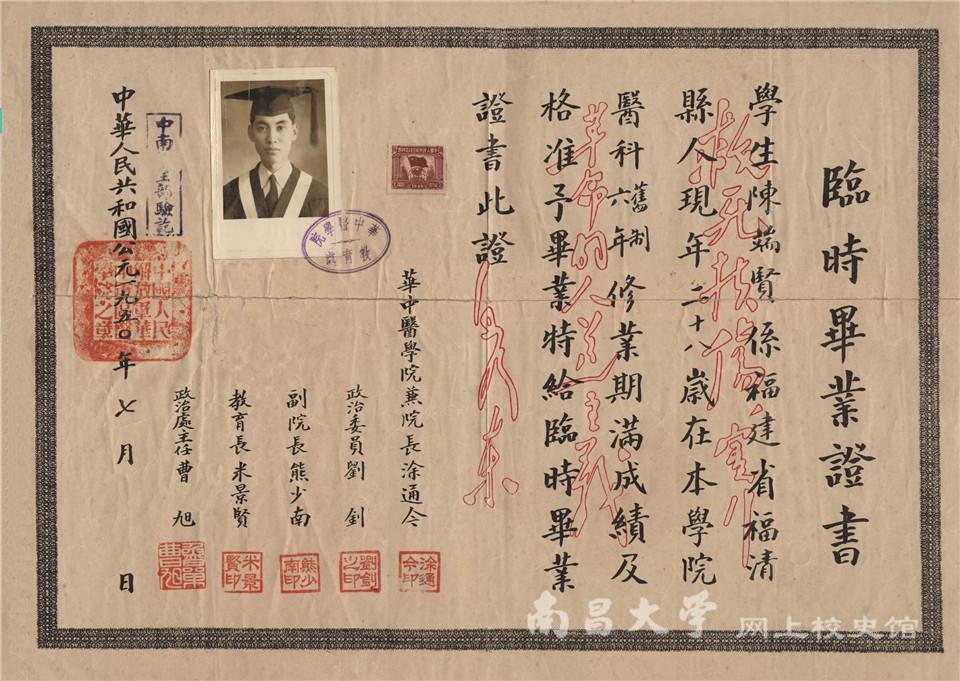 臨時畢業證書
學生陳端賢係福建省福清
縣人現年二十八歲在本學院
醫科舊制六年修業期滿成績及
格准予畢業特給臨時畢業
證書此證
救死扶傷實行
革命的人道主義
毛澤東
華中醫學院兼院長涂通今
政治委員劉釗
副院長熊少南
教育長米景賢
政治處主任曹旭
中華人民共和國公元一九五〇年七月 日
華中醫學院
教育處
中南
驗訖
涂通今印
劉釗之印
熊少南印
米景賢印
南昌大学 网上校史馆